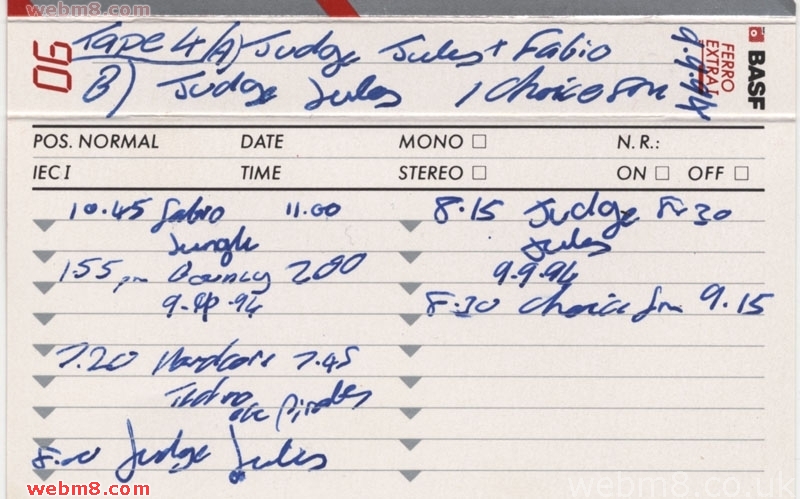 webm8.com
90
Tape 4 (A) Judge Jules + Fabio
B) Judge Jules / Choice FM
9.9.94
FERRO EXTRA I
BASF
POS. NORMAL DATE MONO N.R.:
IEC I TIME STEREO ON OFF
10.45 Fabio 11.00
Jungle
1.55 pm Bouncy 200
9.9.94
7.20 Hardcore 7.45
Techno
Pirates
8.00 Judge Jules
8.15 Judge 8.30
Jules
9.9.94
8.30 Choice fm 9.15
webm8.com
webm8.co.uk